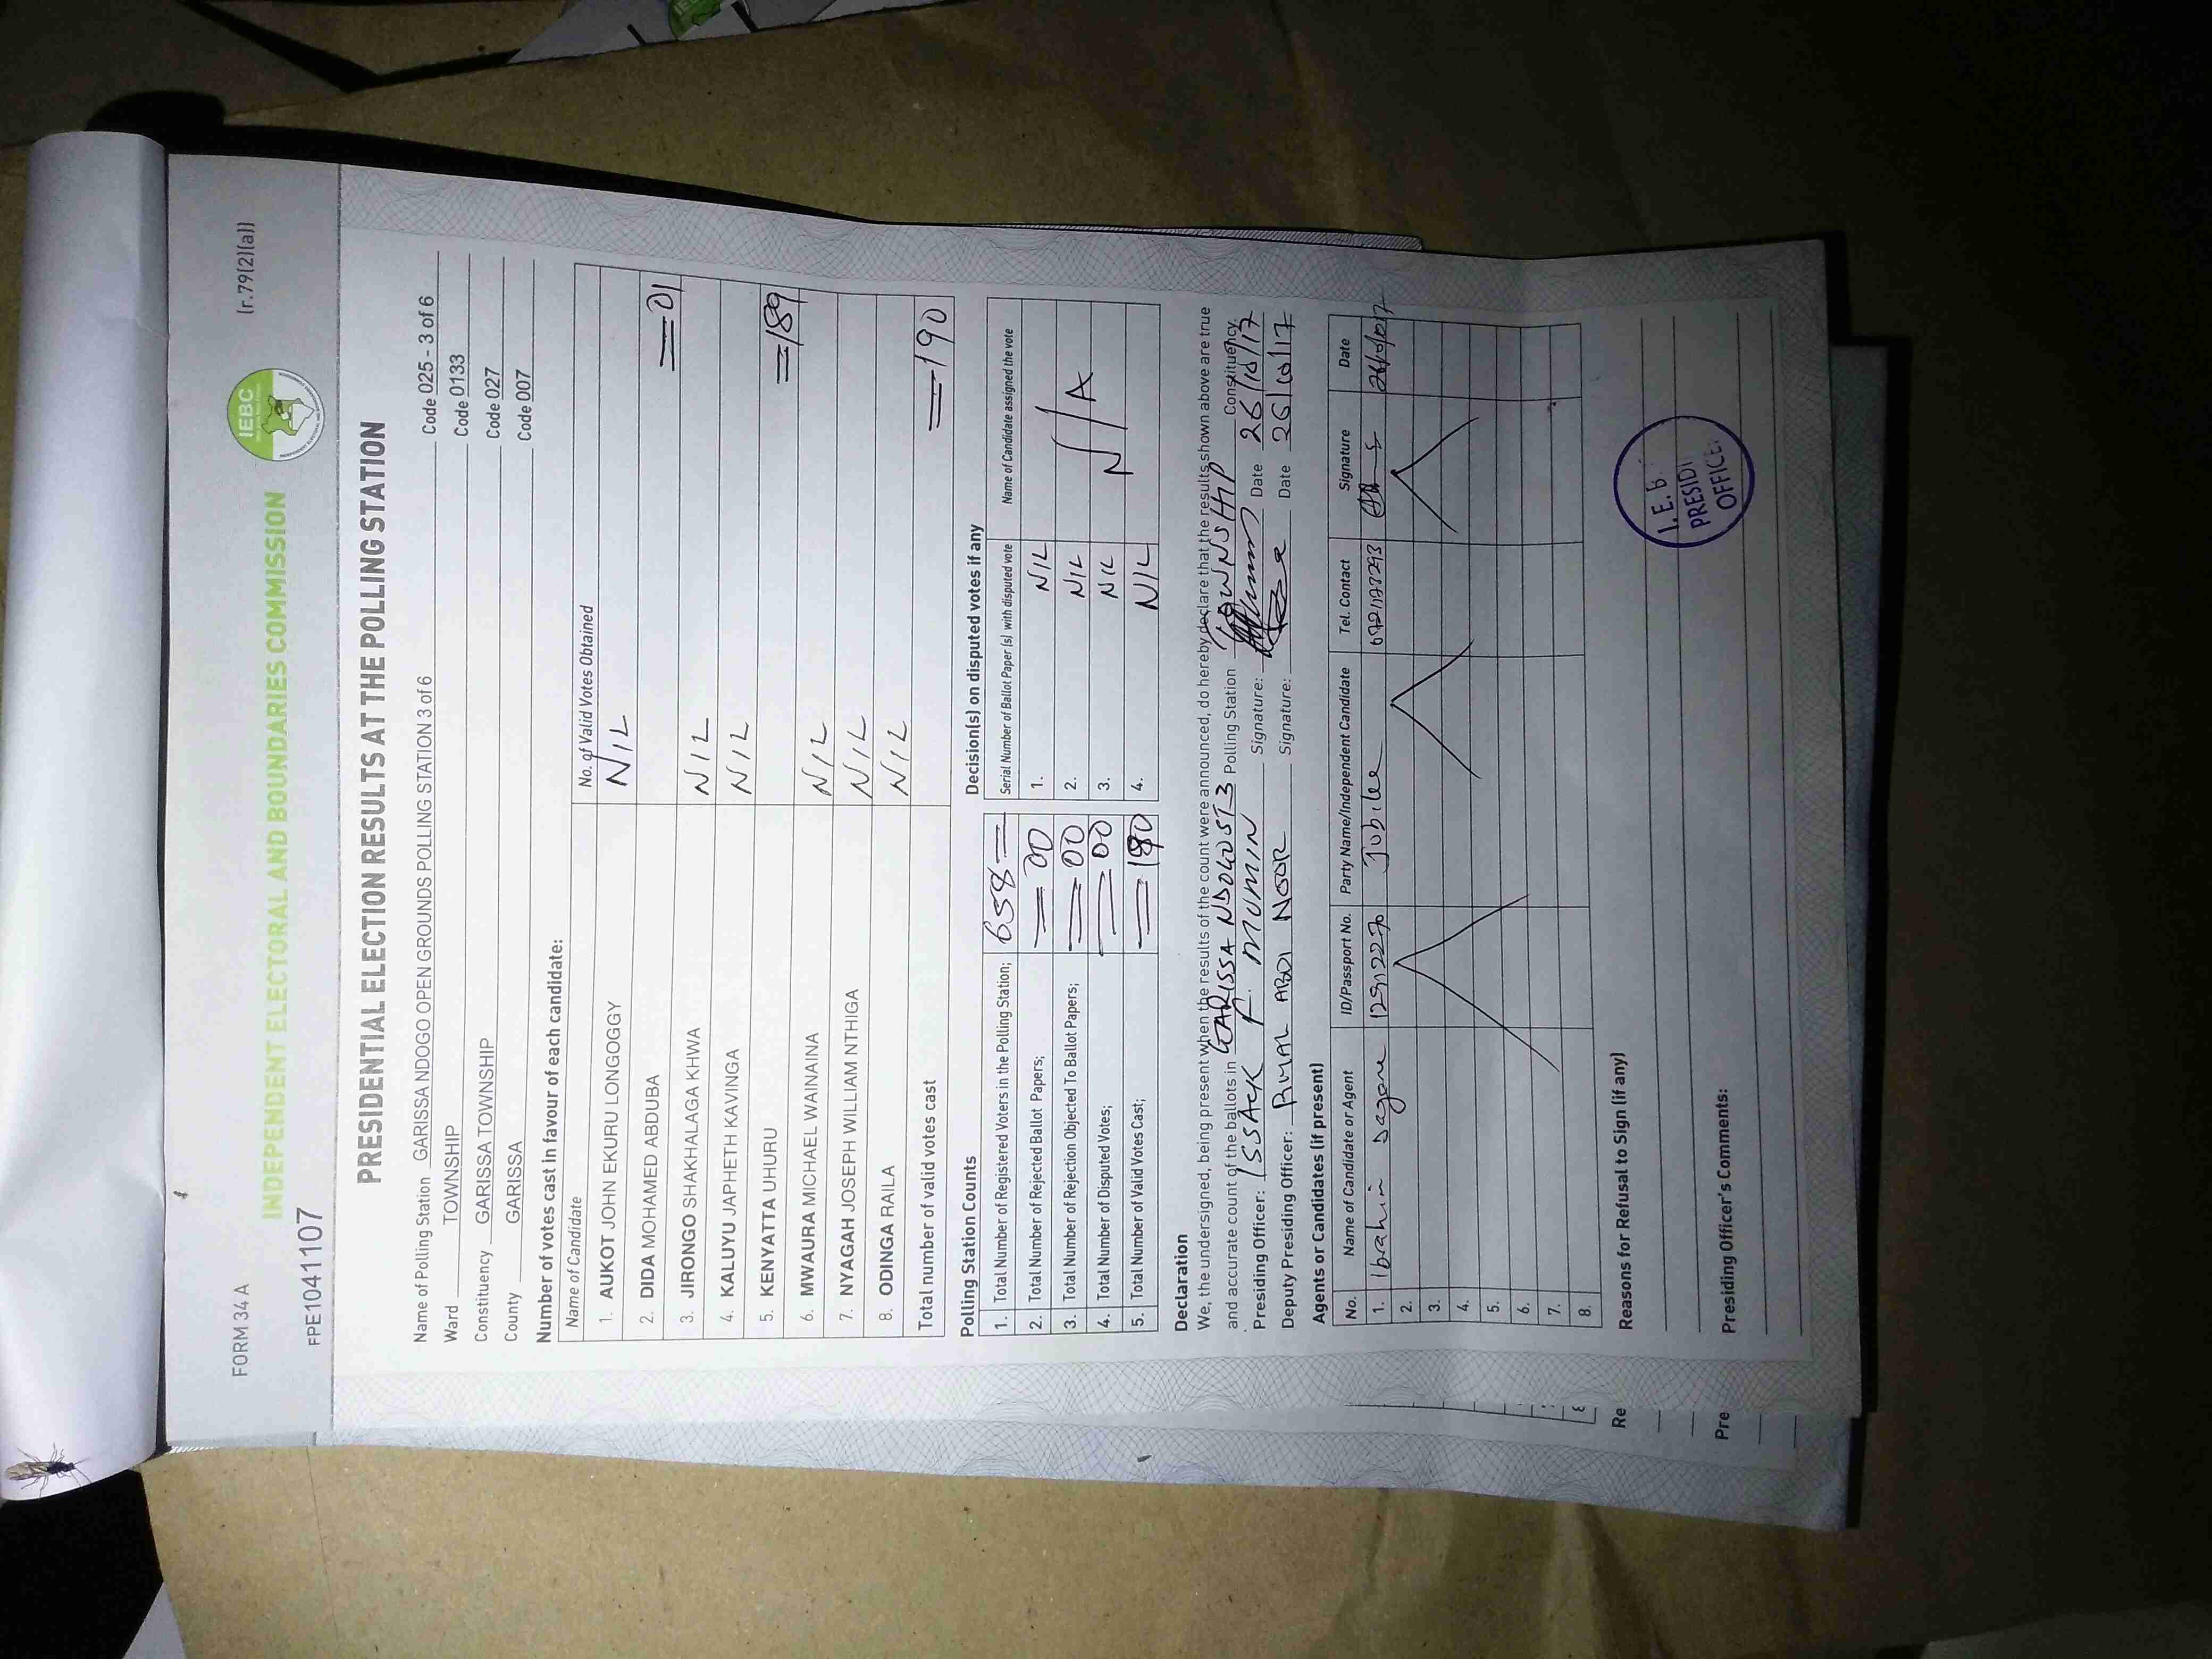 FORM 34 A
(r.79(2)(a))
IEBC
INDEPENDENT ELECTORAL AND BOUNDARIES COMMISSION
FPE1041107
PRESIDENTIAL ELECTION RESULTS AT THE POLLING STATION
Name of Polling Station GARISSA NDOGO OPEN GROUNDS POLLING STATION 3 of 6 Code 025 - 3 of 6
Ward TOWNSHIP Code 0133
Constituency GARISSA TOWNSHIP Code 027
County GARISSA Code 007
Number of votes cast in favour of each candidate:
Name of Candidate No. of Valid Votes Obtained
1. AUKOT JOHN EKURU LONGOGGY NIL
2. DIDA MOHAMED ABDUBA =01
3. JIRONGO SHAKHALAGA KHWA NIL
4. KALUYU JAPHETH KAVINGA NIL
5. KENYATTA UHURU =189
6. MWAURA MICHAEL WAINAINA NIL
7. NYAGAH JOSEPH WILLIAM NTHIGA NIL
8. ODINGA RAILA NIL
Total number of valid votes cast =190
Polling Station Counts
1. Total Number of Registered Voters in the Polling Station; 658=
2. Total Number of Rejected Ballot Papers; =00
3. Total Number of Rejection Objected To Ballot Papers; =00
4. Total Number of Disputed Votes; =00
5. Total Number of Valid Votes Cast; =190
Decision(s) on disputed votes if any
Serial Number of Ballot Paper (s) with disputed vote Name of Candidate assigned the vote
1. NIL
2. NIL N/A
3. NIL
4. NIL
Declaration
We, the undersigned, being present when the results of the count were announced, do hereby declare that the results shown above are true
and accurate count of the ballots in GARISSA NDOGO ST 3 Polling Station TOWNSHIP Constituency.
Presiding Officer: ISSACK F. MUMIN Signature: Date 26/10/17
Deputy Presiding Officer: ABDI NOOR Signature: Date 26/10/17
Agents or Candidates (if present)
No. Name of Candidate or Agent ID/Passport No. Party Name/Independent Candidate Tel. Contact Signature Date
1. Ibrahim Jubilee
2.
3.
4.
5.
6.
7.
8.
Reasons for Refusal to Sign (if any)
Presiding Officer's Comments:
I.E.B.
PRESIDI
OFFICE
Re
Pre